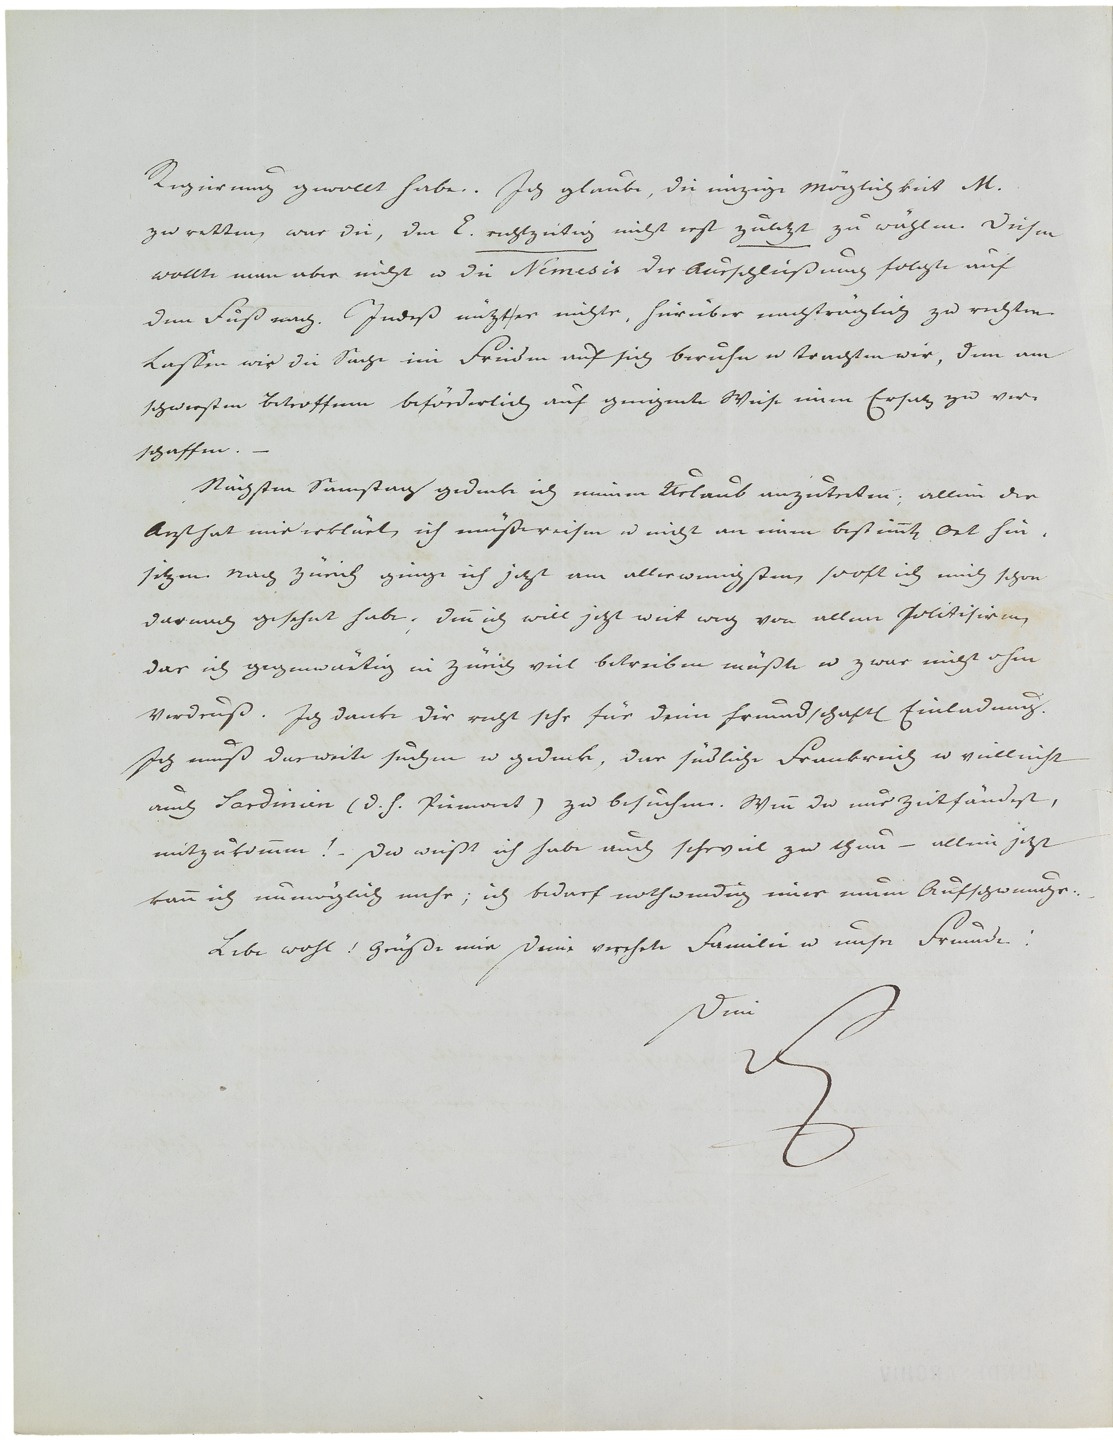 Regierung gewollt habe. Ich glaube, die einzige Möglichkeit M.
zu retten, war die, den E. rechtzeitig nicht erst zuletzt zu wählen. Diesen
wollte man aber nicht u die Nemesis der Ausschließung folgte auf
dem Fuß nach. Indeß nützt es nichts, hierüber nachträglich zu rechten.
Lassen wir die Sache im Frieden auf sich beruhen u trachten wir, dem am
schwersten Betroffenen beförderlich auf geeignete Weise einen Ersatz zu ver-
schaffen. –
Nächsten Samstag gedenke ich meinen Urlaub anzutreten; allein der
Arzt hat mir erklärt, ich müße reisen u nicht an einem bestimmten Ort hin-
sitzen. Nach Zürich ginge ich jetzt am allerwenigsten, so oft ich mich schon
darnach gesehnt habe; denn ich will jetzt weit weg von allem Politisiren,
das ich gegenwärtig in Zürich viel betreiben müßte u zwar nicht ohne
Verdruß. Ich danke dir recht sehr für deine freundschaftl Einladung.
Ich muß das weite suchen u gedenke, das südliche Frankreich u vielleicht
auch Sardinien (d. h. Piemont) zu besuchen. Wenn du nur Zeit fändest,
mitzukommen! – Du weißt ich habe auch sehr viel zu thun – allein jetzt
kann ich unmöglich mehr; ich bedarf nothwendig eines neuen Aufschwunges.
Lebe wohl! Grüße mir Deine verehrte Familie u unsre Freunde!
Dein